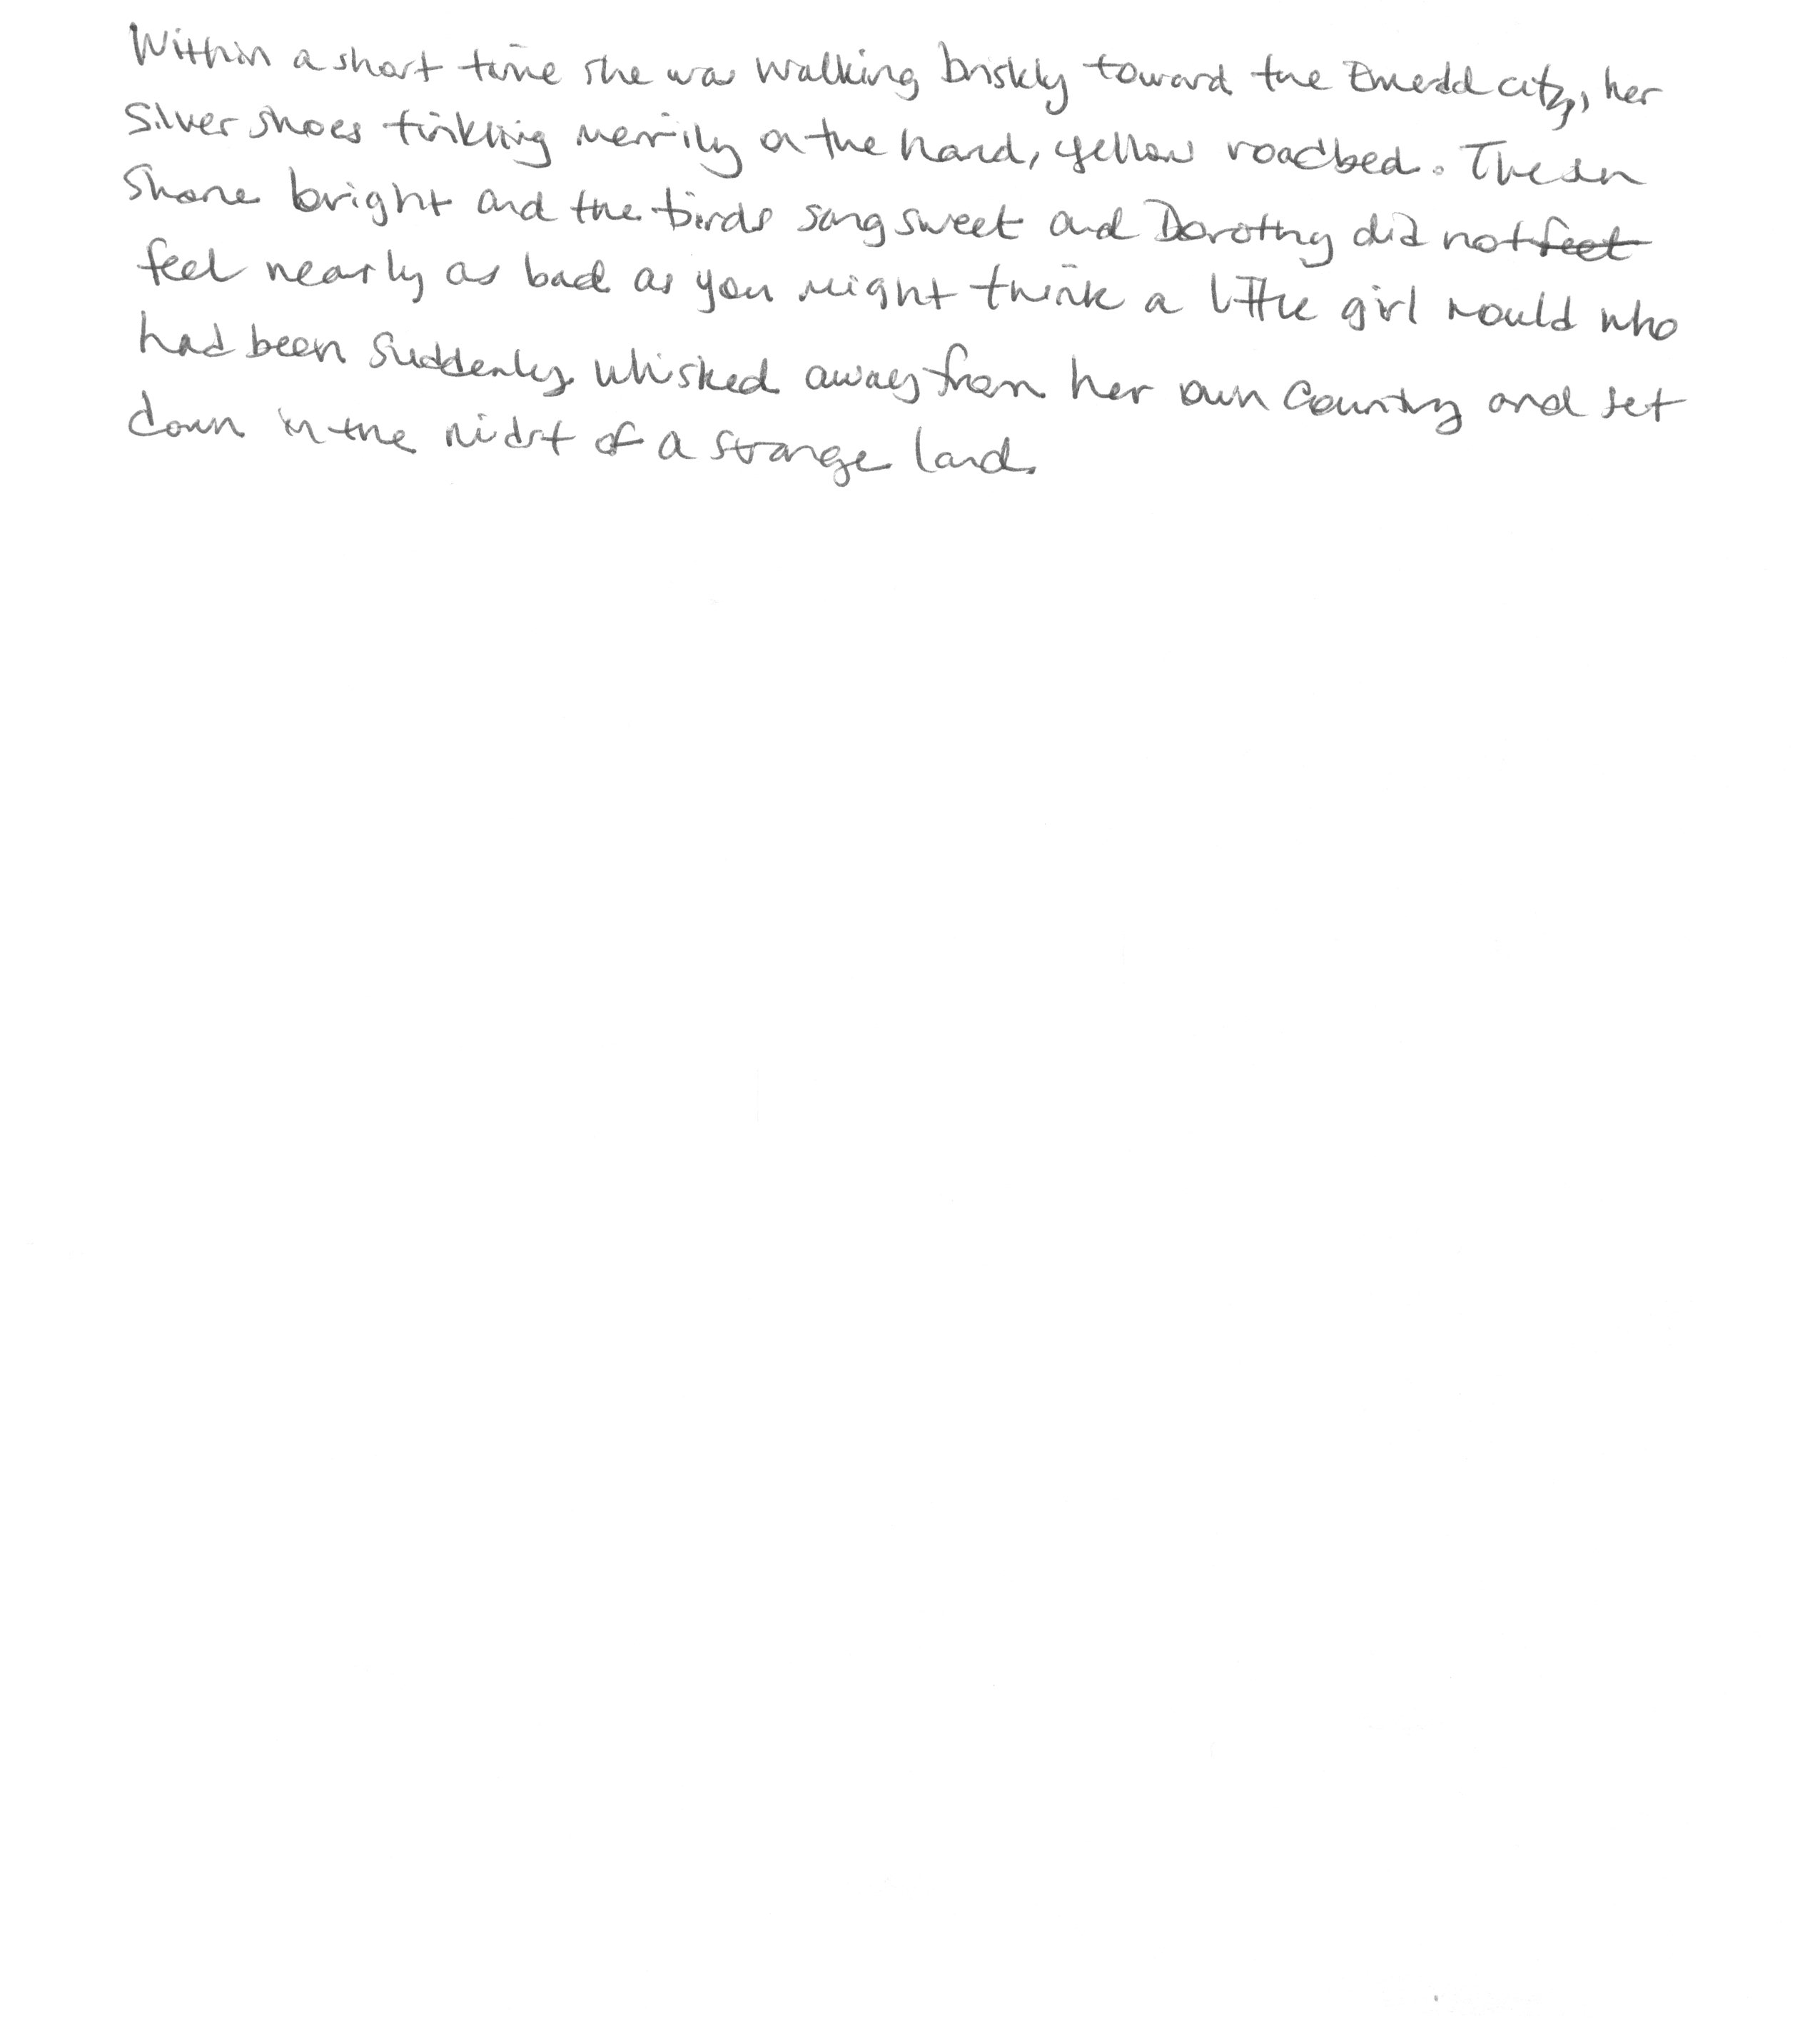 Within a short time she was walking briskly toward the Emerald City, her
Silver Shoes tinkling merrily on the hard, yellow roadbed. The sun
shone bright and the birds sang sweet and Dorothy did not feet
feel nearly as bad as you might think a little girl would who
had been suddenly whisked away from her own country and set
down in the midst of a strange land.